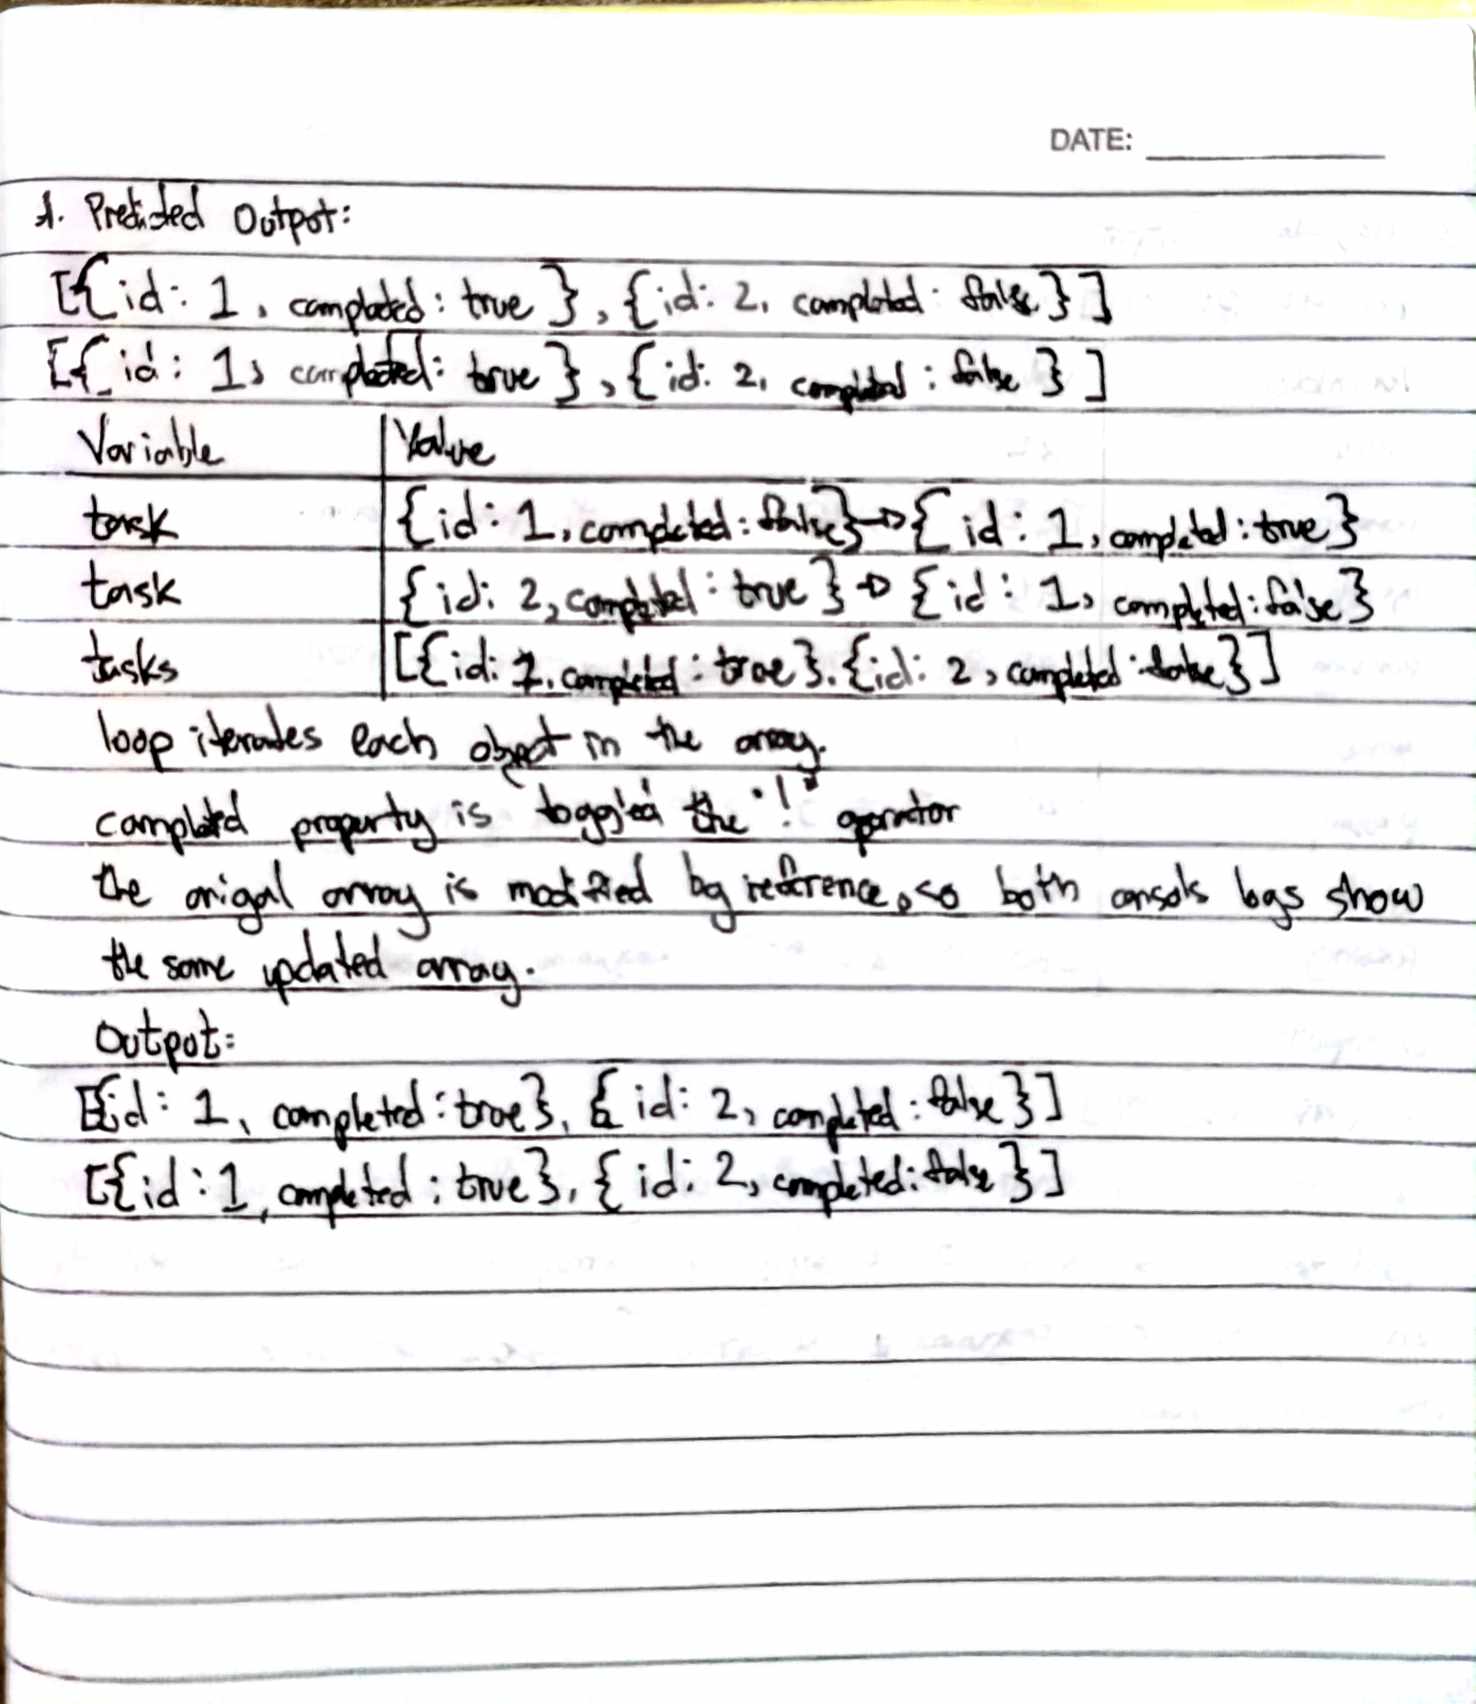 DATE:
1. Predicted Output:
[{id: 1, completed: true}, {id: 2, completed: false}]
[{id: 1, completed: true}, {id: 2, completed: false}]
Variable | Value
task | {id: 1, completed: false} → {id: 1, completed: true}
task | {id: 2, completed: true} → {id: 1, completed: false}
tasks | [{id: 1, completed: true}, {id: 2, completed: false}]
loop iterates each object in the array.
completed property is toggled the "!" operator
the origal array is modified by reference, so both console logs show
the same updated array.
Output:
[{id: 1, completed: true}, {id: 2, completed: false}]
[{id: 1, completed: true}, {id: 2, completed: false}]